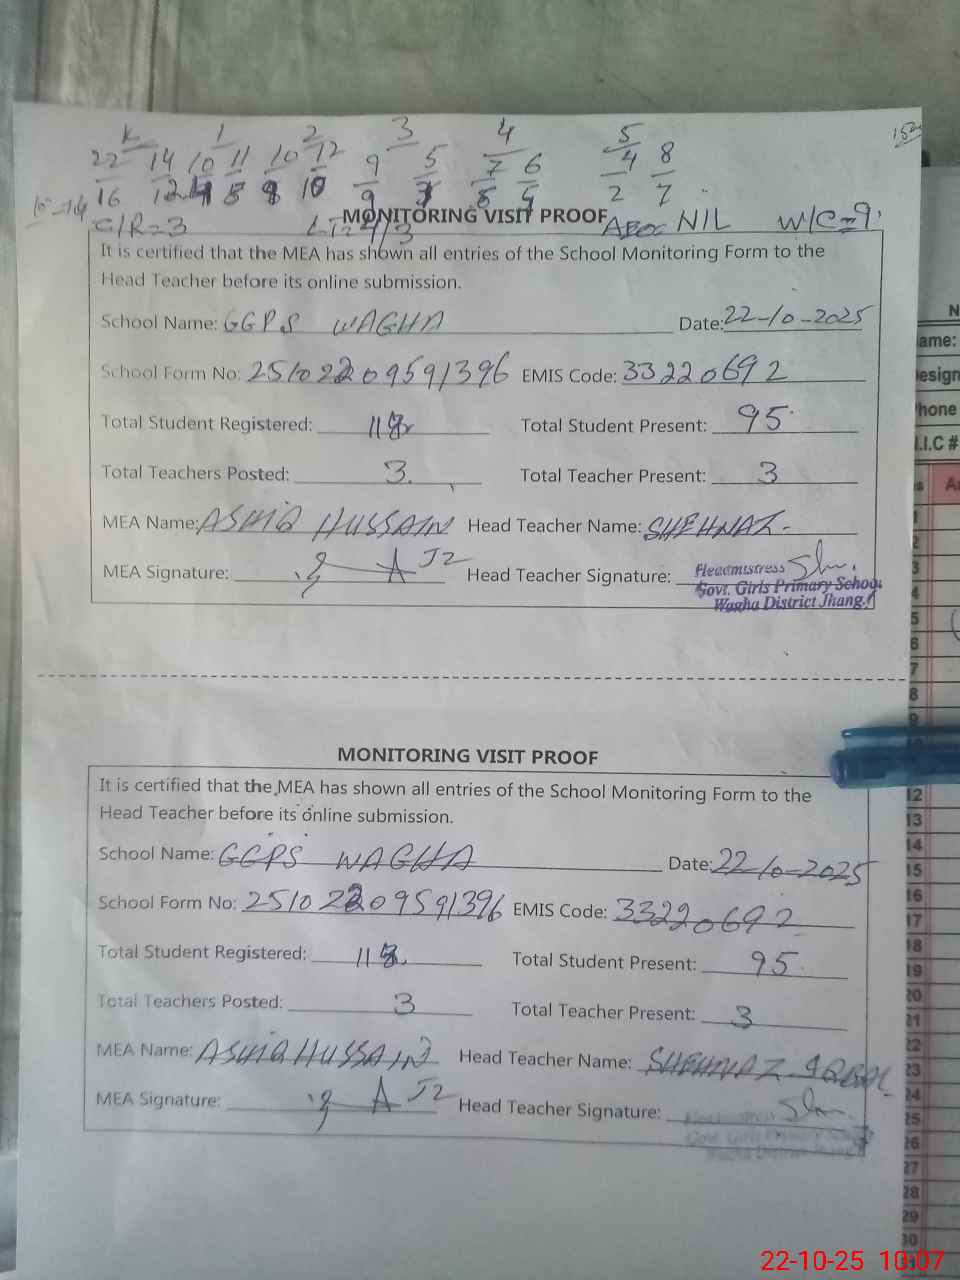 K 1 2 3 4 5
22 14 10 11 10 12 9 5 7 6 4 8
16 12 8 10 9 2 7
C/R=3 NIL W/C=9
MONITORING VISIT PROOF
It is certified that the MEA has shown all entries of the School Monitoring Form to the
Head Teacher before its online submission.
School Name: GGPS WAGHA Date: 22-10-2025
School Form No: 25102209591396 EMIS Code: 33220692
Total Student Registered: Total Student Present: 95
Total Teachers Posted: 3 Total Teacher Present: 3
MEA Name: ASHIQ HUSSAIN Head Teacher Name: SHEHNAZ
MEA Signature: Head Teacher Signature:
Headmistress
Govt. Girls Primary School
Wagha District Jhang.
MONITORING VISIT PROOF
It is certified that the MEA has shown all entries of the School Monitoring Form to the
Head Teacher before its online submission.
School Name: GGPS WAGHA Date: 22-10-2025
School Form No: 25102209591396 EMIS Code: 33220692
Total Student Registered: Total Student Present: 95
Total Teachers Posted: 3 Total Teacher Present: 3
MEA Name: ASHIQ HUSSAIN Head Teacher Name: SHEHNAZ IQBAL
MEA Signature: Head Teacher Signature:
ame:
esign
hone
I.C #
2
3
4
5
6
7
8
9
12
13
14
15
16
17
18
19
20
21
22
23
24
25
26
27
28
29
30
22-10-25 10:07